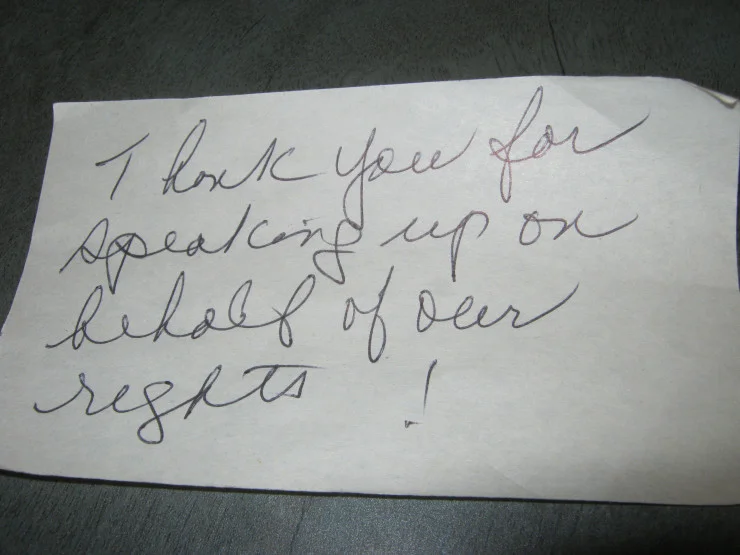 Thank you for
speaking up on
behalf of our
rights !